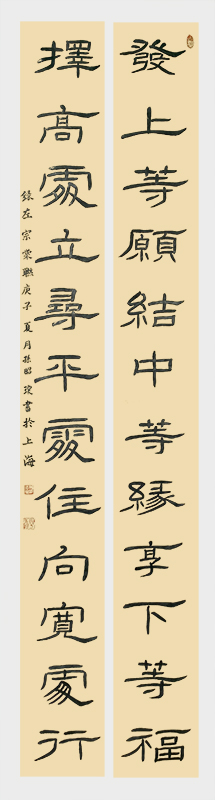 發上等願結中等緣享下等福
擇高處立尋平處住向寬處行
錄左宗棠聯庚子夏月孫昭瓊書於上海